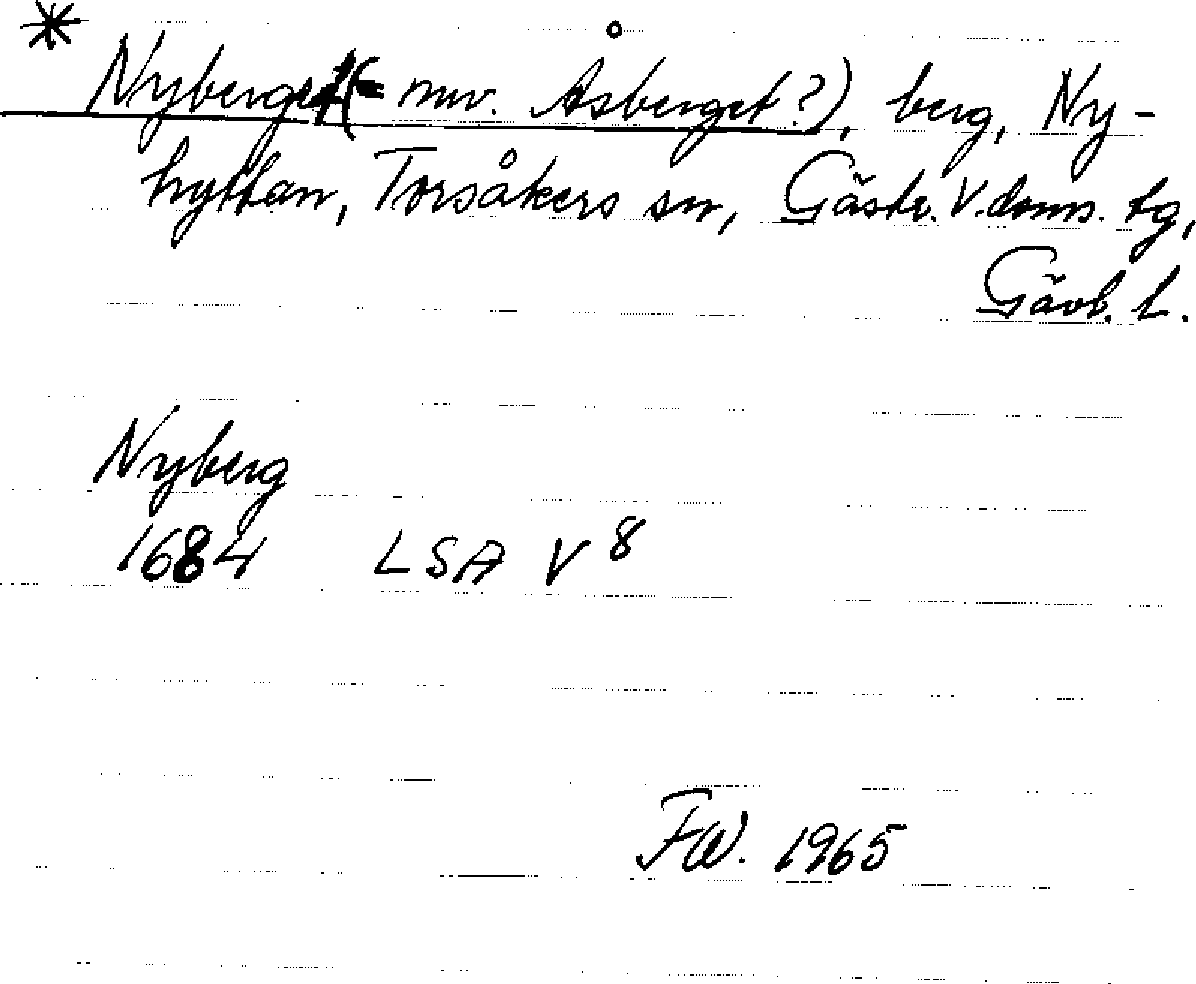 * Nyberget (= nuv. Åsberget?), berg, Ny-
hyttan, Torsåkers sn, Gästr. V. doms. tg,
Gävb. l.
Nyberg
1684 LSA V 8
FW. 1965